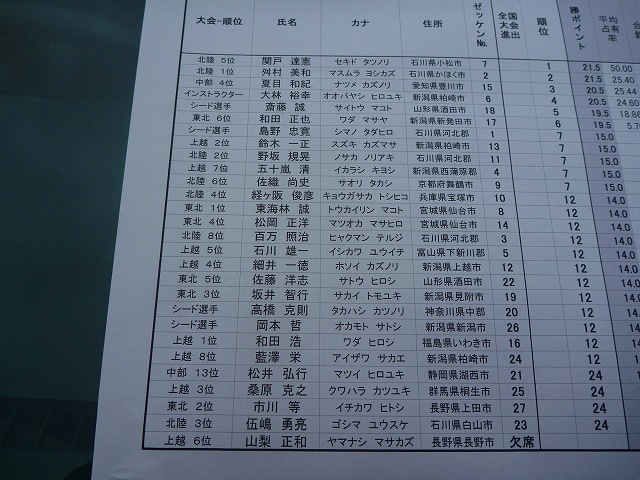 大会-順位 氏名 カナ 住所 ゼッケンNo. 全国大会進出 順位 勝ポイント 平均占有率
北陸 5位 関戸 達憲 セキド タツノリ 石川県小松市 7 1 21.5 50.00
北陸 1位 舛村 美和 マスムラ ヨシカズ 石川県かほく市 2 2 21.5 25.40
中部 4位 夏目 和紀 ナツメ カズノリ 愛知県豊川市 15 3 20.5 25.44
インストラクター 大林 裕幸 オオバヤシ ヒロユキ 新潟県柏崎市 6 4 20.5 24.60
シード選手 斎藤 誠 サイトウ マコト 山形県酒田市 18 5 19.5 18.88
東北 6位 和田 正也 ワダ マサヤ 新潟県新発田市 17 6 19.5
シード選手 島野 忠寛 シマノ タダヒロ 石川県河北郡 1 7 15.0
上越 2位 鈴木 一正 スズキ カズマサ 新潟県柏崎市 13 7 15.0
北陸 2位 野坂 規晃 ノサカ ノリアキ 石川県河北郡 11 7 15.0
上越 7位 五十嵐 清 イカラシ キヨシ 新潟県西蒲原郡 4 7 15.0
北陸 6位 佐織 尚史 サオリ タカシ 京都府舞鶴市 9 7 15.0
北陸 4位 経ヶ阪 俊彦 キョウガサカ トシヒコ 兵庫県宝塚市 10 12 14.0
東北 1位 東海林 誠 トウカイリン マコト 宮城県仙台市 8 12 14.0
東北 4位 松岡 正洋 マツオカ マサヒロ 宮城県仙台市 14 12 14.0
北陸 8位 百万 照治 ヒャクマン テルジ 石川県河北郡 3 12 14.0
上越 5位 石川 雄一 イシカワ ユウイチ 富山県下新川郡 5 12 14.0
上越 4位 細井 一徳 ホソイ カズノリ 新潟県上越市 12 12 14.0
東北 5位 佐藤 洋志 サトウ ヒロシ 山形県酒田市 22 12 14.0
東北 3位 坂井 智行 サカイ トモユキ 新潟県見附市 19 12 14.0
シード選手 高橋 克則 タカハシ カツノリ 神奈川県中郡 20 12 14.0
シード選手 岡本 哲 オカモト サトシ 新潟県新潟市 26 12 14.0
上越 1位 和田 浩 ワダ ヒロシ 福島県いわき市 16 12 14.0
上越 8位 藍澤 栄 アイザワ サカエ 新潟県柏崎市 24 12
中部 13位 松井 弘行 マツイ ヒロユキ 静岡県湖西市 21 24
上越 3位 桑原 克之 クワハラ カツユキ 群馬県桐生市 25 24
東北 2位 市川 等 イチカワ ヒトシ 長野県上田市 27 24
北陸 3位 伍嶋 勇亮 ゴシマ ユウスケ 石川県白山市 23 24
上越 6位 山梨 正和 ヤマナシ マサカズ 長野県長野市 欠席